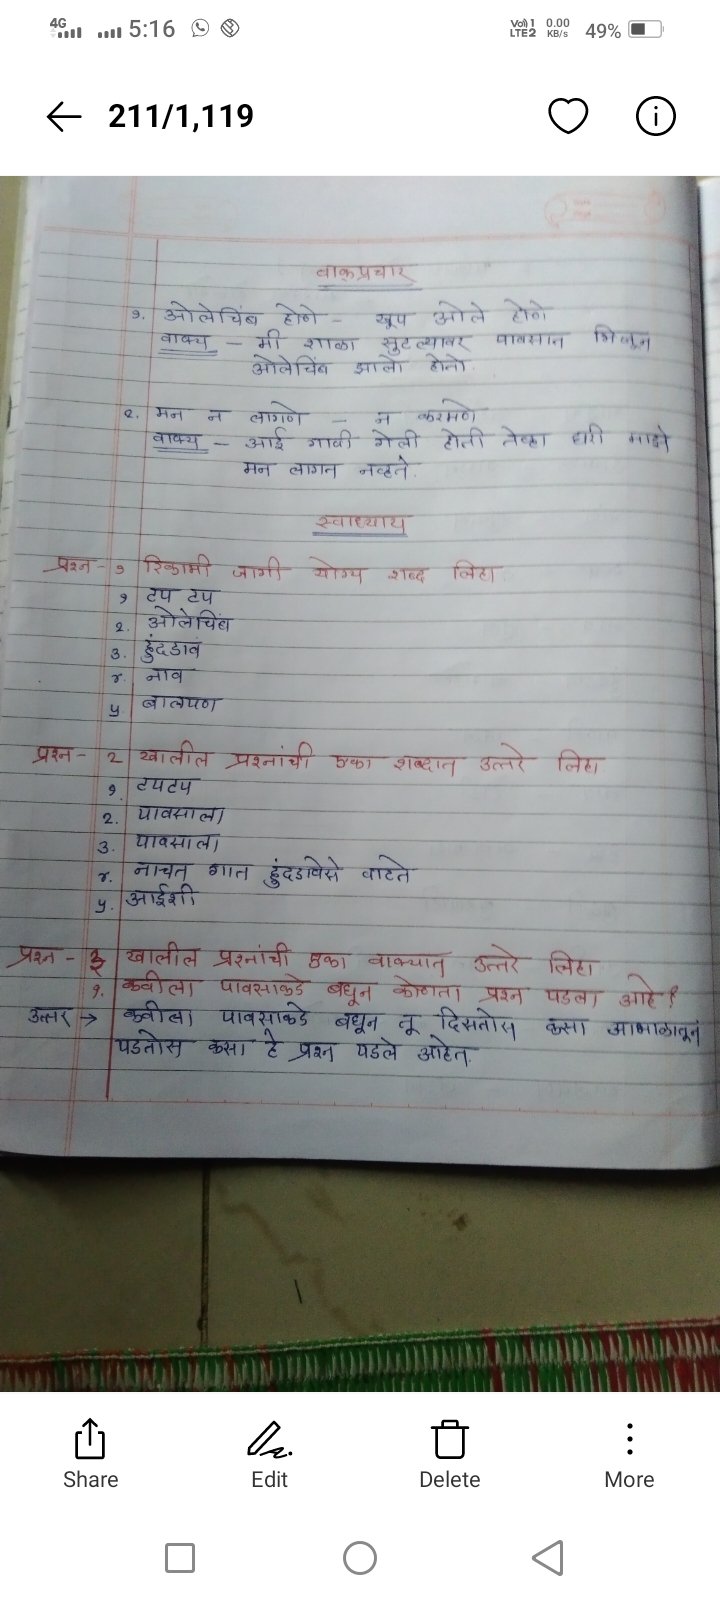 4G 5:16 Vo)) 1 LTE2 0.00 KB/s 49%
211/1,119
वाक्प्रचार
१. ओलेचिंब होणे - खूप ओले होणे
वाक्य - मी शाळा सुटल्यावर पावसान भिजून
ओलेचिंब झालो होतो.
२. मन न लागणे - न करमणे
वाक्य - आई गावी गेली होती तेव्हा घरी माझे
मन लागत नव्हते.
स्वाध्याय
प्रश्न - १ रिकामी जागी योग्य शब्द लिहा
१ टप टप
२. ओलेचिंब
३. हुंदडावं
४. नाव
५ बालपण
प्रश्न - २ खालील प्रश्नांची एका शब्दात उत्तरे लिहा
१. टपटप
२. पावसाला
३. पावसाला
४. नाचत गात हुंदडावेसे वाटते
५. आईशी
प्रश्न - ३ खालील प्रश्नांची एका वाक्यात उत्तरे लिहा
१. कवीला पावसाकडे बघून कोणता प्रश्न पडला आहे?
उत्तर → कवीला पावसाकडे बघून तू दिसतोस कसा आभाळातून
पडतोस कसा हे प्रश्न पडले आहेत.
Share Edit Delete More